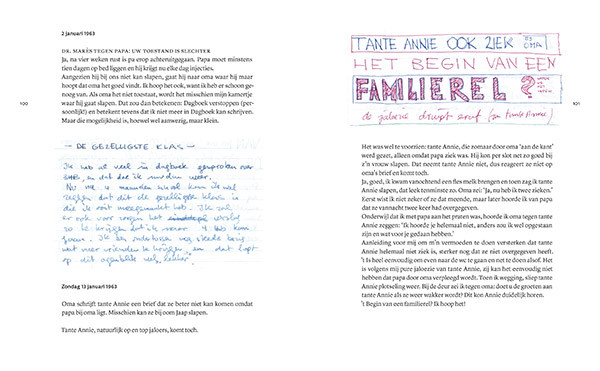 2 januari 1963
DR. MARÈS TEGEN PAPA: UW TOESTAND IS SLECHTER
Ja, na vier weken rust is pa erop achteruitgegaan. Papa moet minstens
tien dagen op bed liggen en hij krijgt nu elke dag injecties.
Aangezien hij bij ons niet kan slapen, gaat hij naar oma waar hij maar
hoopt dat oma het goed vindt. Ik hoop het ook, want ik heb er schoon ge-
noeg van. Als oma het niet toestaat, wordt het misschien mijn kamertje
waar hij gaat slapen. Dat zou dan betekenen: Dagboek verstoppen (per-
soonlijk!) en tevens betekent het dat ik niet meer in Dagboek kan schrijven.
Maar die mogelijkheid is, hoewel wel aanwezig, maar klein.
100
— DE GEZELLIGSTE KLAS —
Ik heb al veel in dagboek gesproken over
en dat dat ik
Nu na 4 maanden school kan ik wel
zeggen dat dit de gezelligste klas is
die ik ooit meegemaakt heb. Ik zal
er ook voor zorgen het verslag
zo te krijgen dat ik naar 4
Ik ben nog steeds bezig
met meer vrienden te krijgen, en dat loopt
op dit ogenblik wel "lekker".
Zondag 13 januari 1963
Oma schrijft tante Annie een brief dat ze beter niet kan komen omdat
papa bij oma ligt. Misschien kan ze bij oom Jaap slapen.
Tante Annie, natuurlijk op en top jaloers, komt toch.
TANTE ANNIE OOK ZIEK BIJ OMA
HET BEGIN VAN EEN
FAMILIEREL?
de jaloezie druipt eraf (van tante Annie)
101
Het was wel te voorzien: tante Annie, die zomaar door oma 'aan de kant'
werd gezet, alleen omdat papa ziek was. Hij kon per slot net zo goed bij
z'n vrouw slapen. Dat neemt tante Annie niet, dus reageert ze niet op
oma's brief en komt toch.
Ja, goed, ik kwam vanochtend een fles melk brengen en toen zag ik tante
Annie slapen, dat leek tenminste zo. Oma zei: 'Ja, nu heb ik twee zieken.'
Eerst wist ik niet zeker of ze dat meende, maar later hoorde ik van papa
dat ze vannacht twee keer had overgegeven.
Onderwijl dat ik met papa aan het praten was, hoorde ik oma tegen tante
Annie zeggen: 'Ik hoorde je helemaal niet, anders zou ik wel opgestaan
zijn en wat voor je gedaan hebben.'
Aanleiding voor mij om m'n vermoeden te doen versterken dat tante
Annie helemaal niet ziek is, sterker nog dat ze niet overgegeven heeft.
't Is heel eenvoudig om even naar de wc te gaan en net te doen alsof. Het
is volgens mij pure jaloezie van tante Annie, zij kan het eenvoudig niet
hebben dat papa door oma verpleegd wordt. Toen ik wegging, sliep tante
Annie plotseling weer. Bij de deur zei ik tegen oma: doet u de groeten aan
tante Annie als ze weer wakker wordt? Dit kon Annie duidelijk horen.
't Begin van een familierel? Ik hoop het!